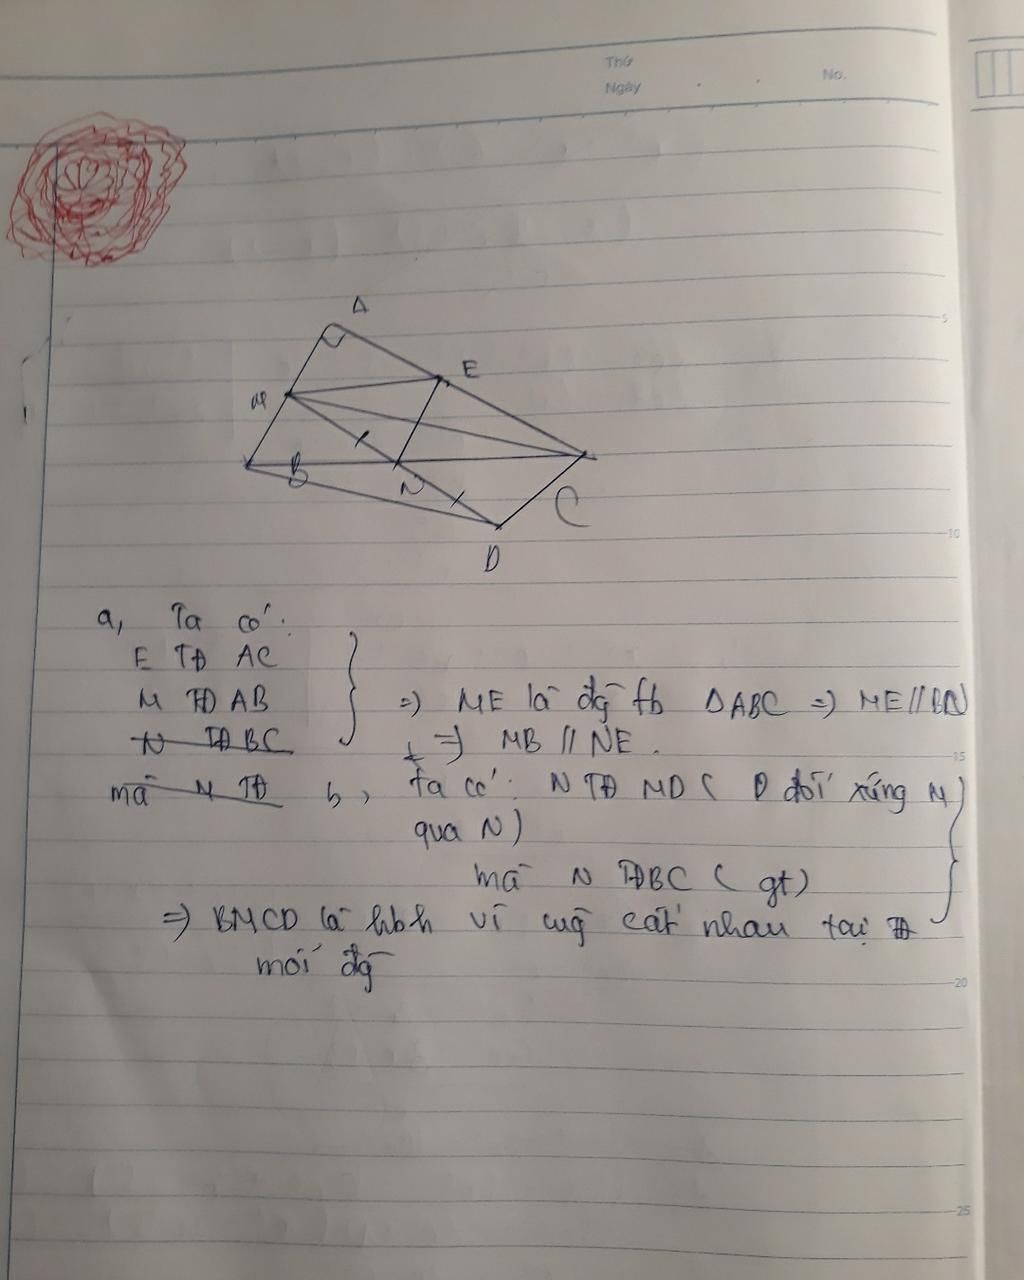 Thứ
Ngày . . No.
A
E
M
B
N
C
D
5
10
15
20
25
a, Ta có:
E TĐ AC
M TĐ AB => ME là đg̃ tb ΔABC => ME//BN
N TĐ BC + => MB // NE.
mà N TĐ b, Ta có: N TĐ MD ( D đối xứng M
qua N)
mà N TĐBC ( gt)
=> BMCD là hbh vì cắt nhau tại TĐ
mỗi đg̃